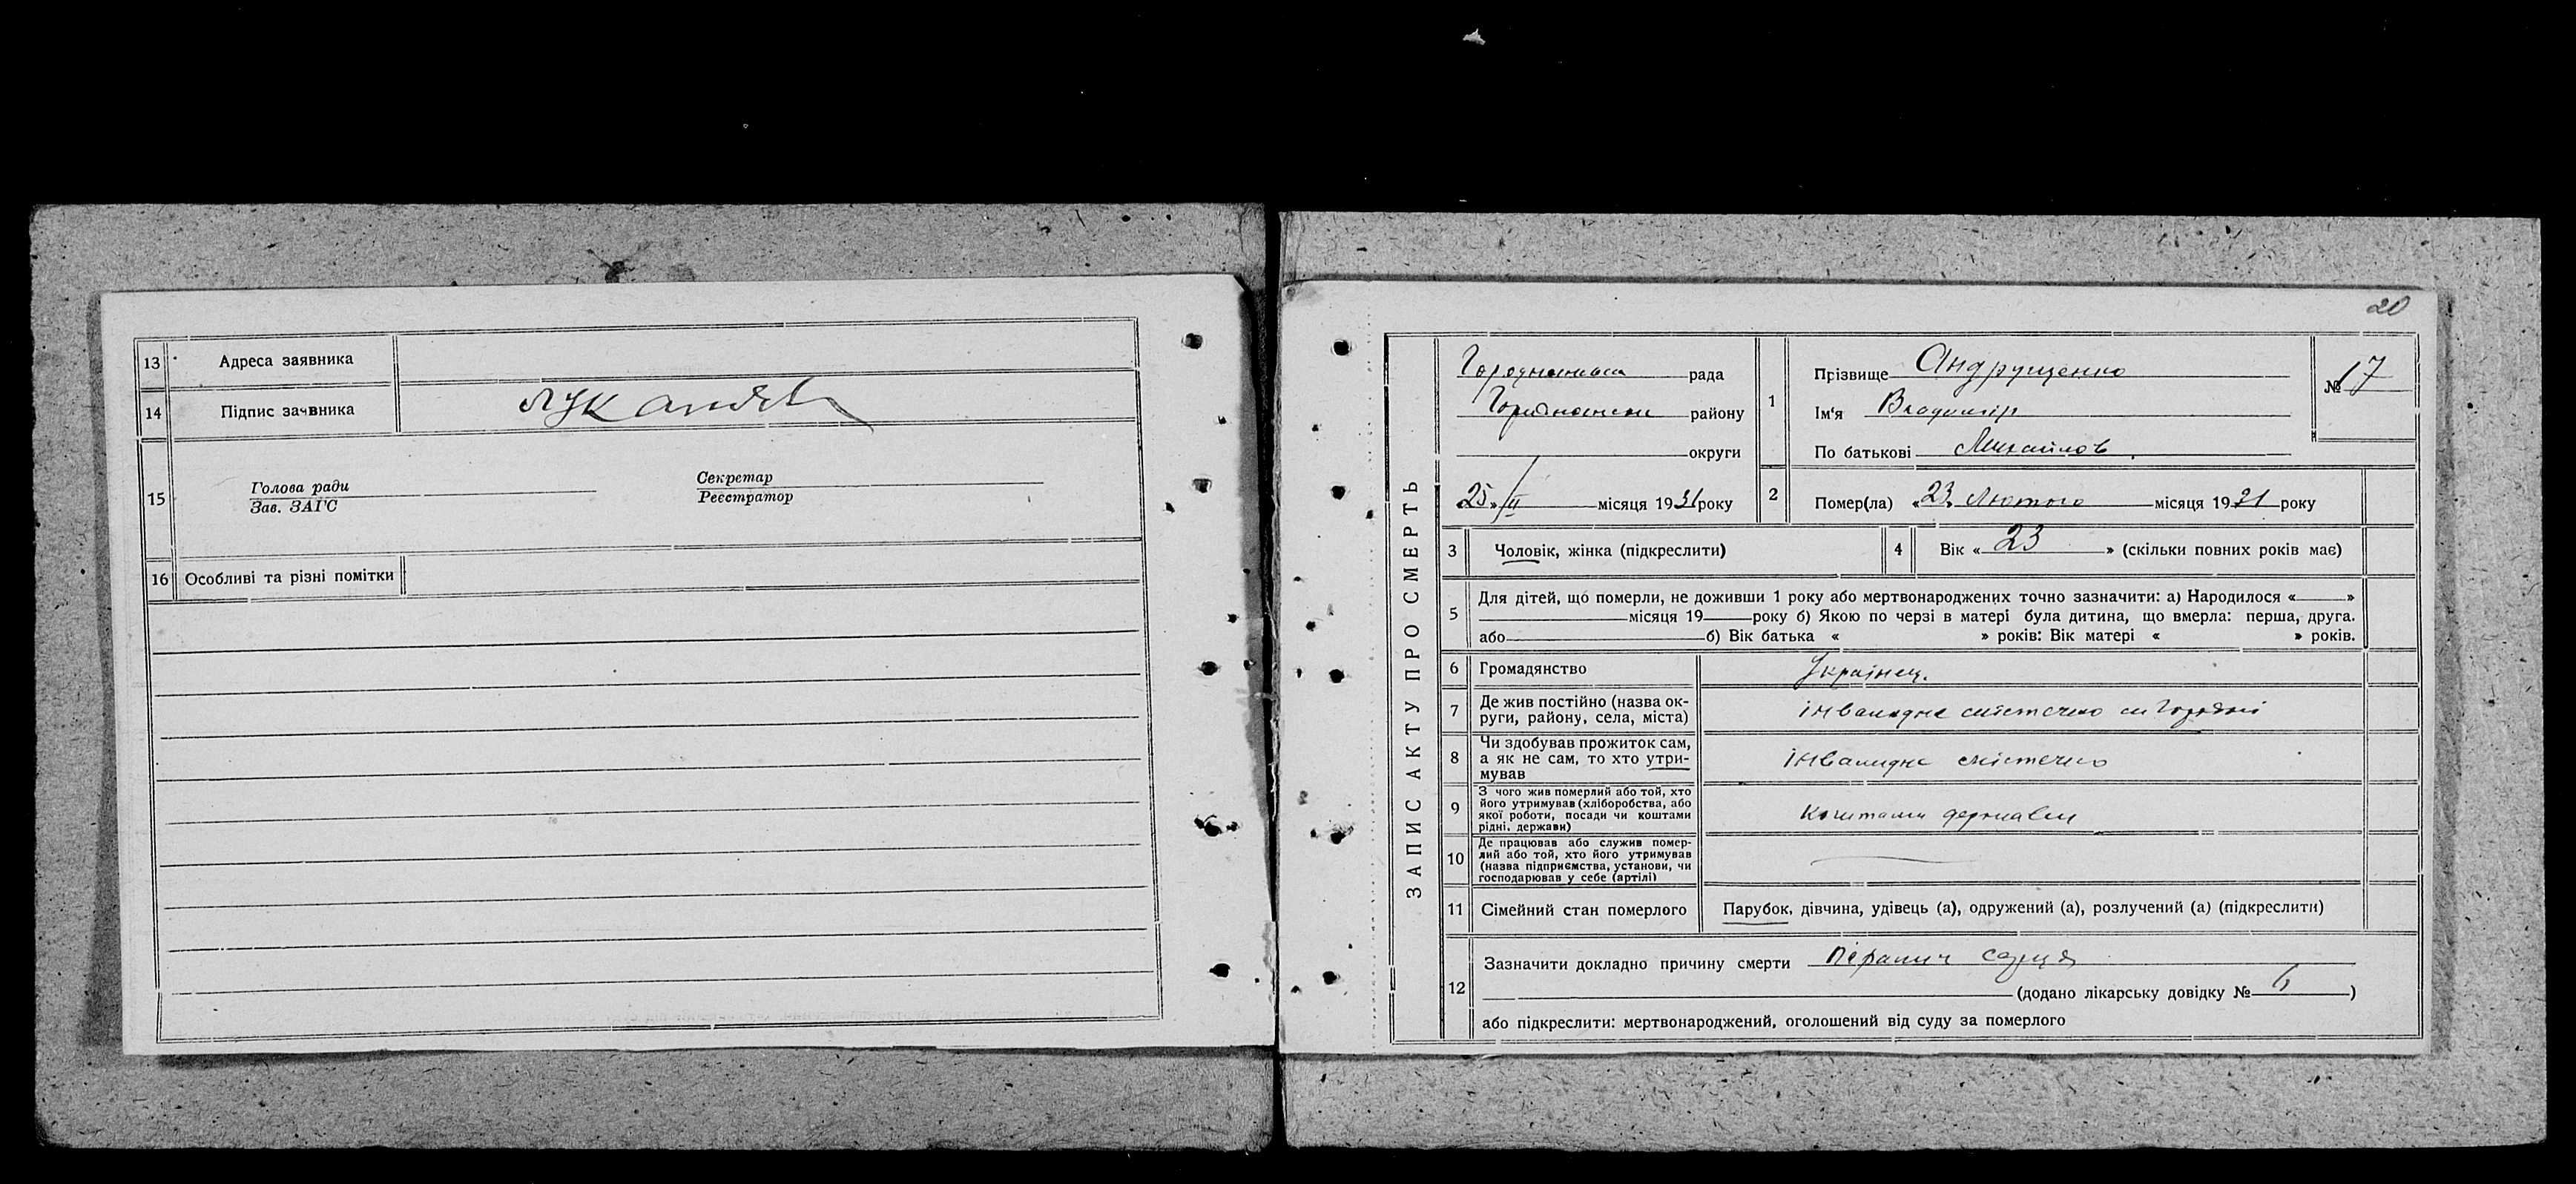 13 Адреса заявника
14 Підпис заявника Луканяв
15 Голова ради
Зав. ЗАГС
Секретар
Реєстратор
16 Особливі та різні помітки
20
ЗАПИС АКТУ ПРО СМЕРТЬ
рада
району
округи
«25» II місяця 1931 року
1 Прізвище Андрущенко
Ім'я Владимір
По батькові Михайлов.
№ 17
2 Помер(ла) «23» Лютого місяця 1931 року
3 Чоловік, жінка (підкреслити)
4 Вік « 23 » (скільки повних років має)
5 Для дітей, що померли, не доживши 1 року або мертвонароджених точно зазначити: а) Народилося « »
місяця 19 року б) Якою по черзі в матері була дитина, що вмерла: перша, друга.
або б) Вік батька « » років: Вік матері « » років.
6 Громадянство Українец.
7 Де жив постійно (назва ок-
руги, району, села, міста) інвалидне містечко м Городні
8 Чи здобував прожиток сам,
а як не сам, то хто утри-
мував інвалидне містечко
9 З чого жив померлий або той, хто
його утримував (хліборобства, або
якої роботи, посади чи коштами
рідні, держави) коштами держави
10 Де працював або служив помер-
лий або той, хто його утримував
(назва підприємства, установи, чи
господарював у себе (артілі)
11 Сімейний стан померлого Парубок, дівчина, удівець (а), одружений (а), розлучений (а) (підкреслити)
12 Зазначити докладно причину смерти параліч серця
(додано лікарську довідку № 6 )
або підкреслити: мертвонароджений, оголошений від суду за померлого